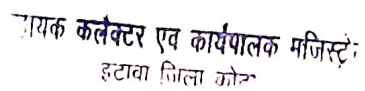 ायक कलेक्टर एव कार्यपालक मजिस्ट्रे
इटावा जिला कोट